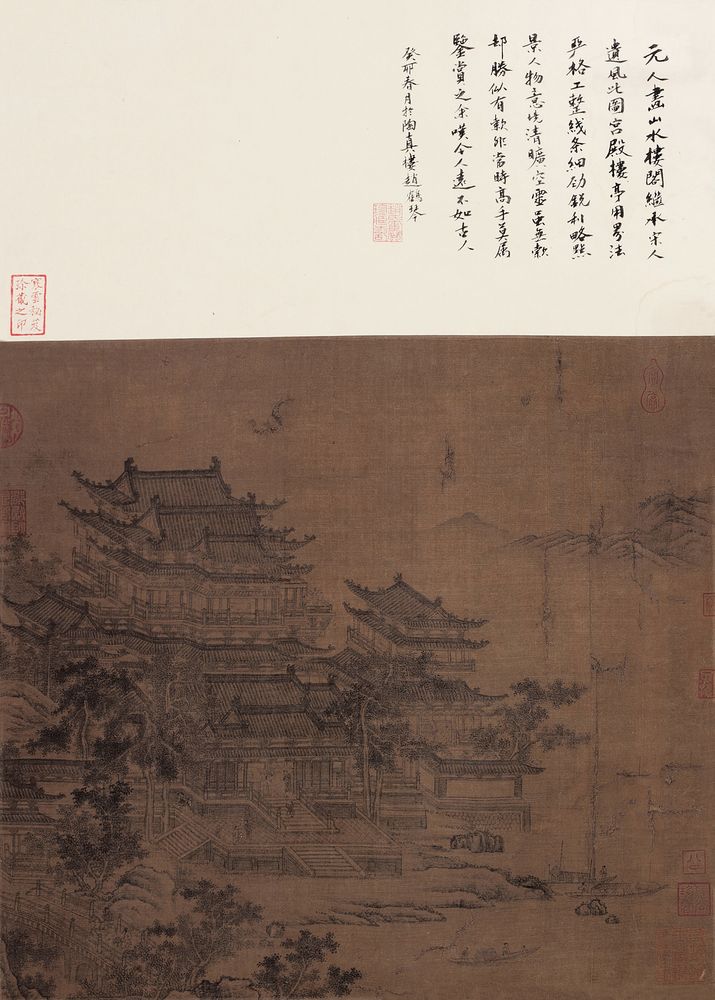 元人畫山水樓閣繼承宋人
遺風此圖宮殿樓亭用界法
严格工整线条细劲銳利略點
景人物意境清曠空靈虽无款
却勝似有款非當時高手莫屬
鑒賞之余嘆今人遠不如古人
癸卯春月於陶真樓趙鶴琴
寒雲秘笈
珍藏之印